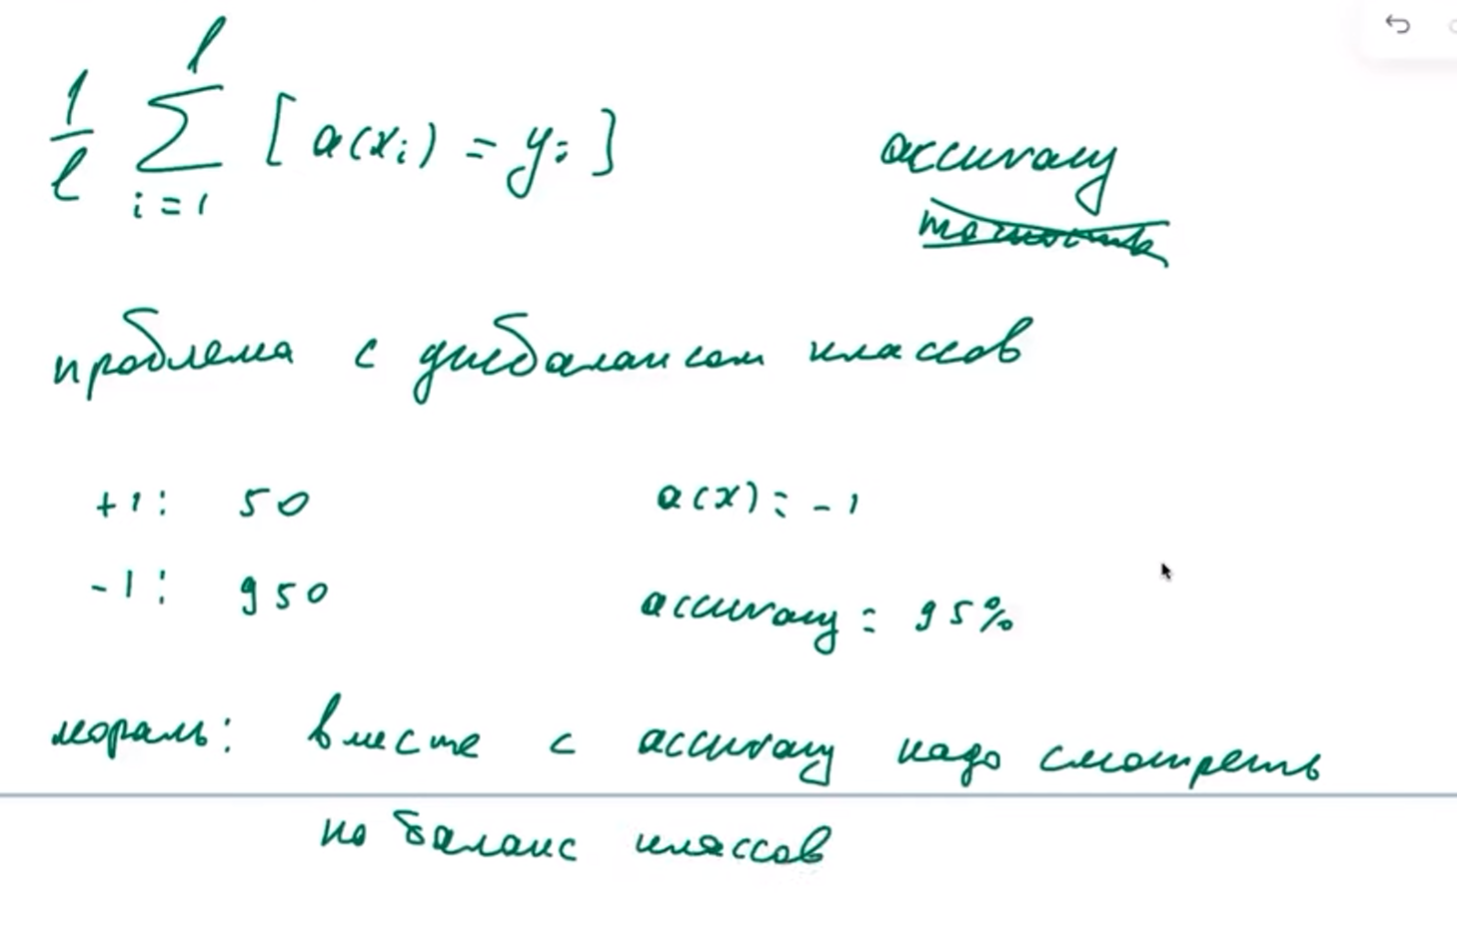 1/ℓ ∑_{i=1}^{ℓ} [a(x_i) = y_i] accuracy
точность
проблема с дисбалансом классов
+1: 50 a(x) = -1
-1: 950 accuracy = 95%
мораль: вместе с accuracy надо смотреть
на баланс классов